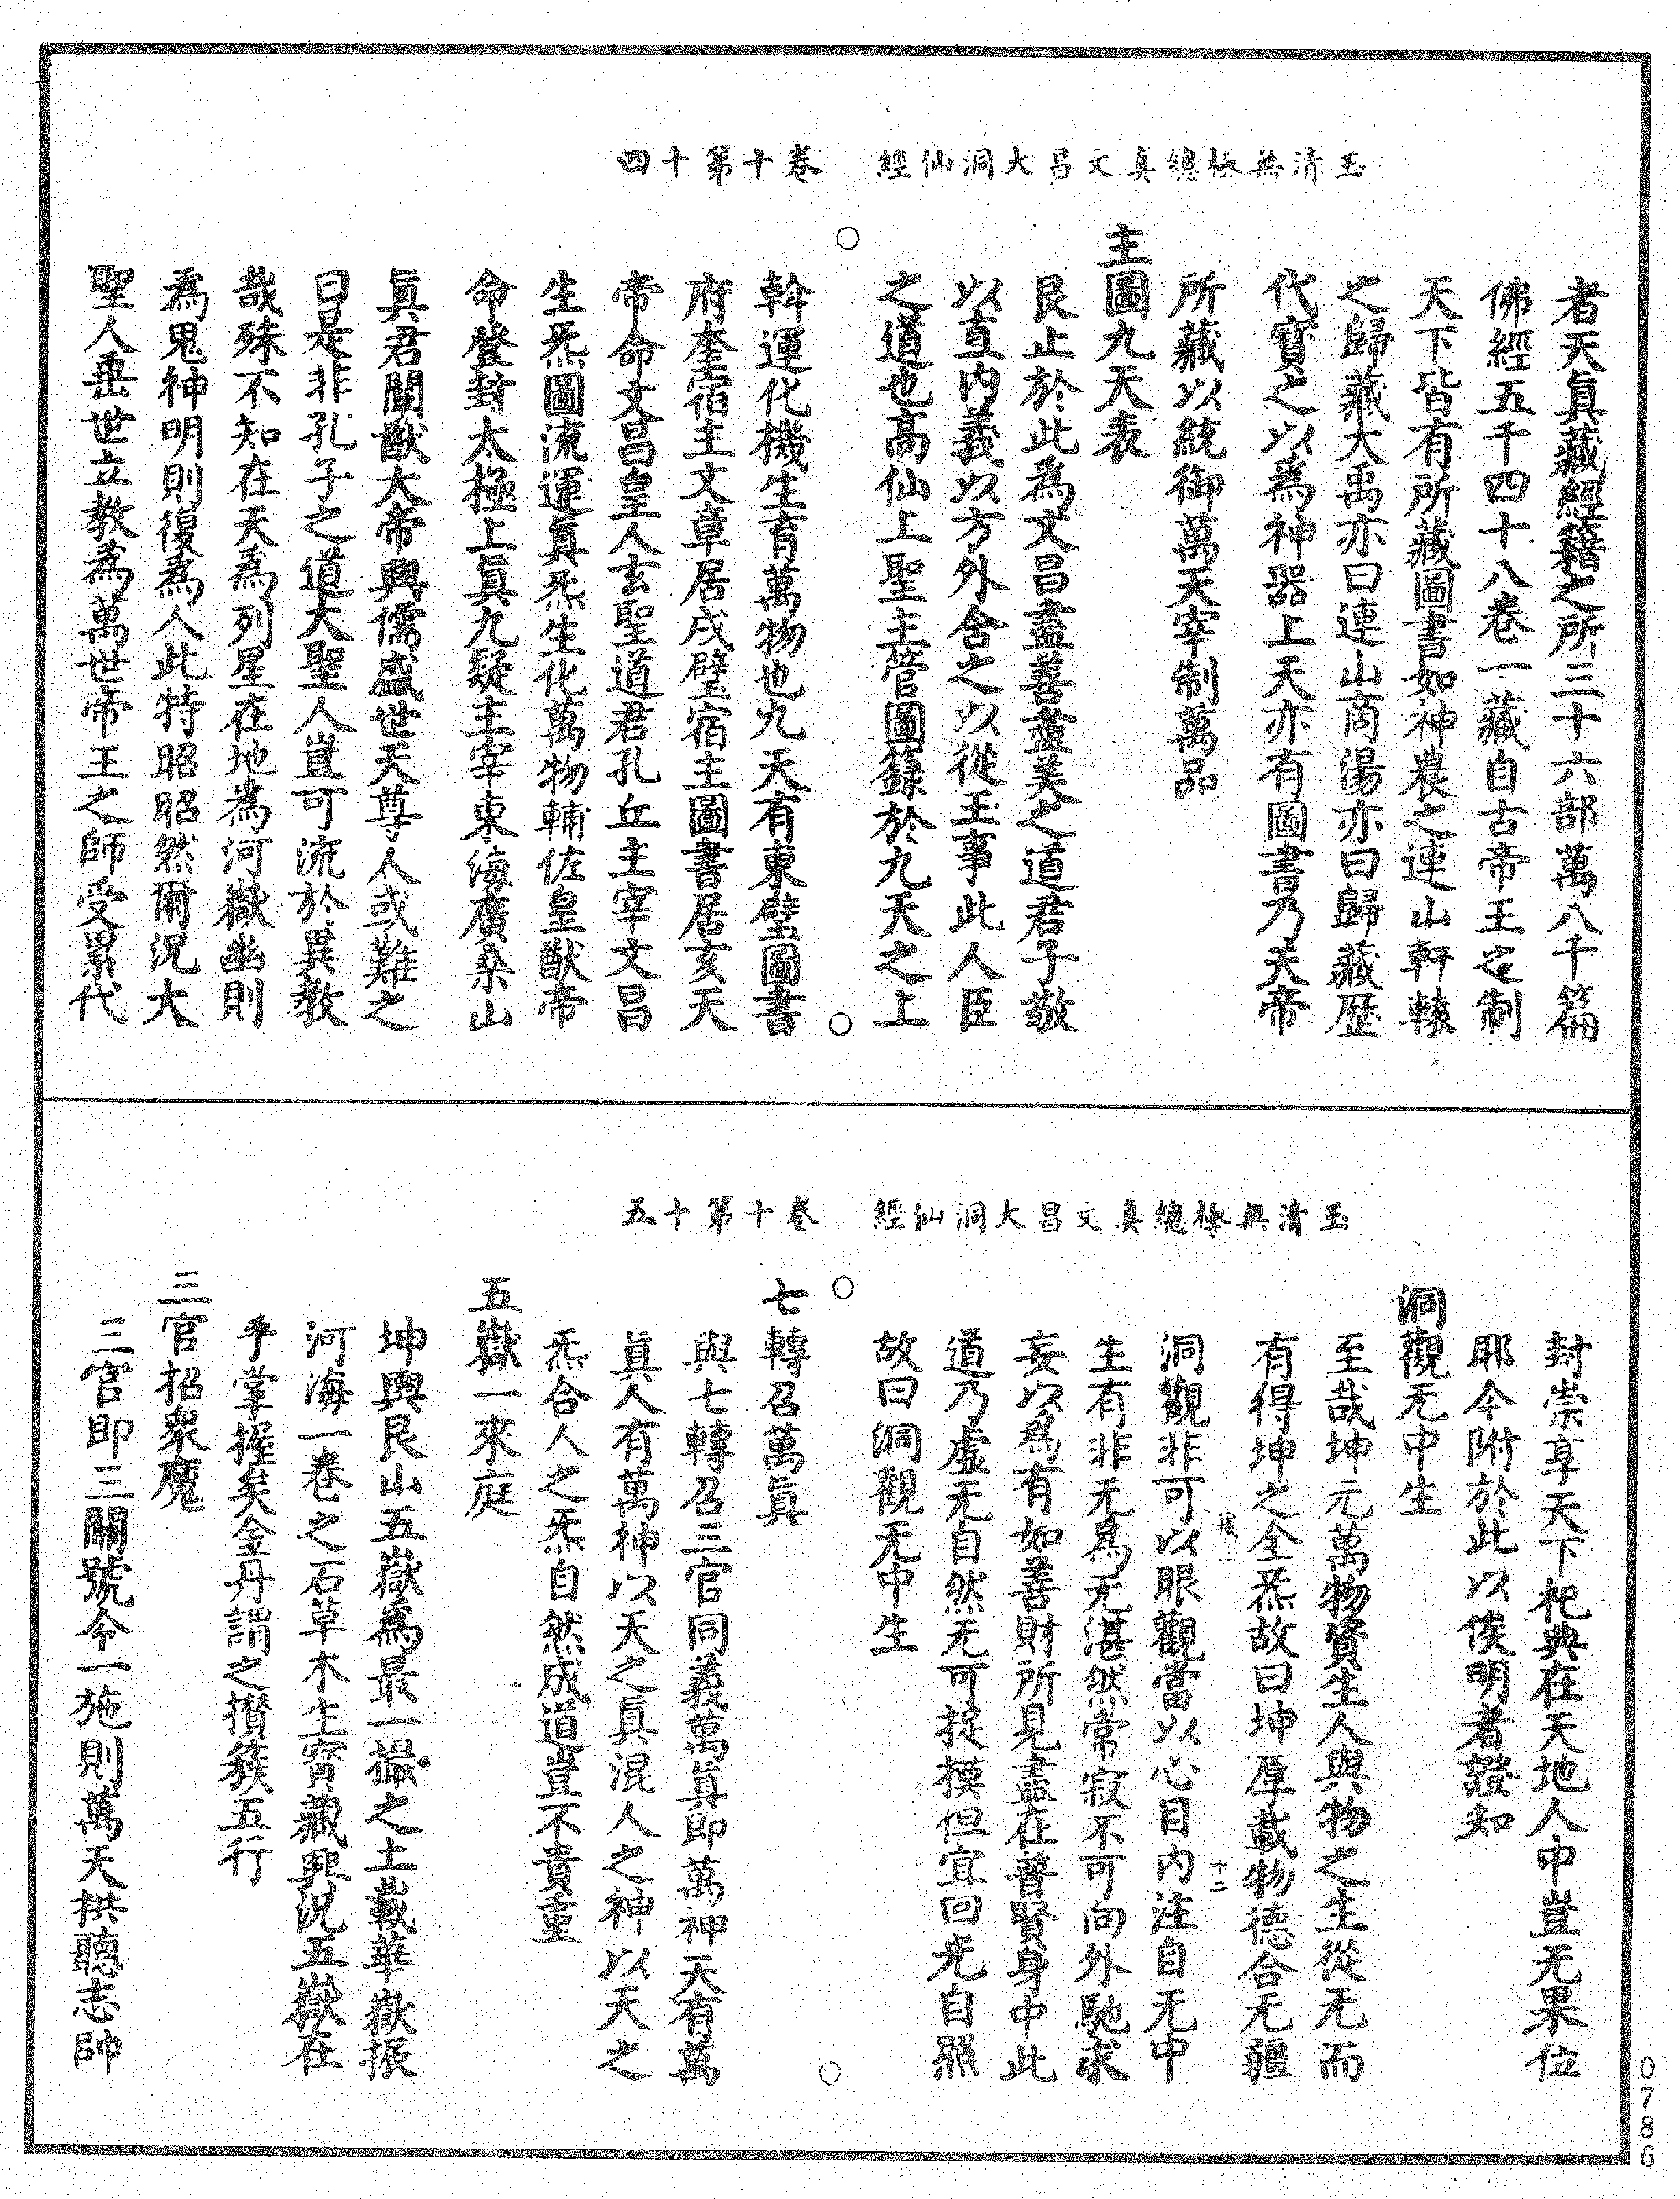 玉清無極總真文昌大洞仙經　卷十第十四
者天真藏經籍之所三十六部萬八千篇
佛經五千四十八卷一藏自古帝王之制
天下皆有所藏圖書如神農之連山軒轅
之歸藏大禹亦曰連山商湯亦曰歸藏歷
代寶之以為神器上天亦有圖書乃天帝
所藏以統御萬天宰制萬品
主圖九天表
艮止於此為文昌盡善盡美之道君子敬
以直內義以方外含之以從王事此人臣
之道也高仙上聖主管圖籙於九天之上
斡運化機生育萬物也九天有東壁圖書
府奎宿主文章居戌壁宿主圖書居亥天
帝命文昌皇人玄聖道君孔丘主宰文昌
生炁圖流運真炁生化萬物輔佐皇猷帝
命登封太極上真九疑主宰東海廣桑山
真君闡猷大帝興儒盛世天尊人或難之
曰是非孔子之道大聖人豈可流於異教
哉殊不知在天為列星在地為河嶽幽則
為鬼神明則復為人此特昭昭然爾況大
聖人垂世立教為萬世帝王之師受累代
玉清無極總真文昌大洞仙經　卷十第十五
封崇享天下祀典在天地人中豈无果位
耶今附於此以俟明者證知
洞觀无中生
至哉坤元萬物資生人與物之生從无而
有得坤之全炁故曰坤厚載物德合无疆
洞觀非可以眼觀當以心目內注自无中
生有非无為无湛然常寂不可向外馳求
妄以為有如善財所見盡在普賢身中此
道乃虛无自然无可捉摸但宜回光自照
故曰洞觀无中生
七轉召萬真
與七轉召三官同義萬真即萬神天有萬
真人有萬神以天之真混人之神以天之
炁合人之炁自然成道豈不貴重
五嶽一來庭
坤輿艮山五嶽為最一撮之土載華嶽振
河海一卷之石草木生寶藏興況五嶽在
乎掌握矣金丹謂之攢簇五行
三官招眾魔
三官即三關號令一施則萬天拱聽志帥
十二
0786